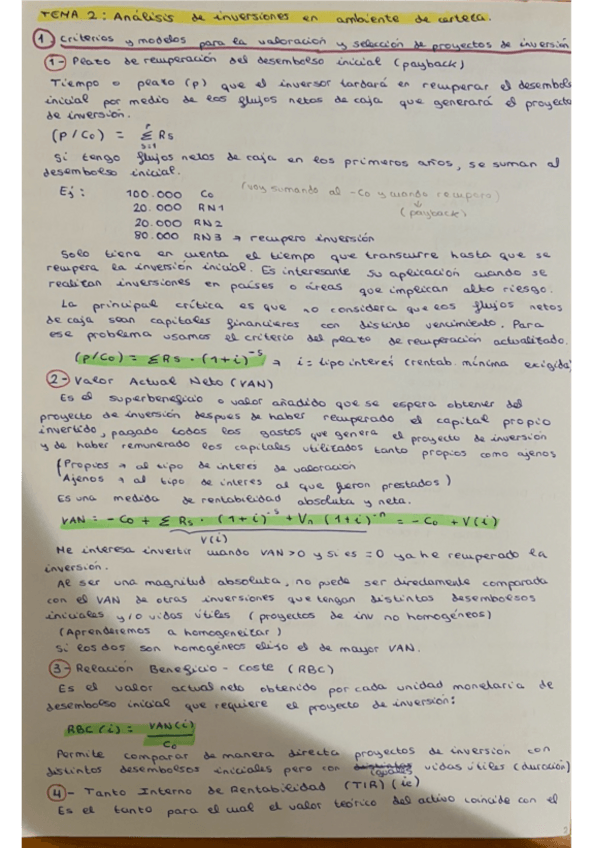 TEMA 2: Análisis de inversiones en ambiente de certeza.
1. Criterios y modelos para la valoración y selección de proyectos de inversión
1- Plazo de recuperación del desembolso inicial (payback)
Tiempo o plazo (p) que el inversor tardará en recuperar el desembols
inicial por medio de los flujos netos de caja que generará el proyecto
de inversión.
(P/Co) = Σ Rs
P
s=1
Si tengo flujos netos de caja en los primeros años, se suman al
desembolso inicial.
Ej: 100.000 Co (voy sumando al -Co y cuando recupero)
20.000 RN1 ↓ (payback)
20.000 RN2
80.000 RN3 → recupero inversión
Solo tiene en cuenta el tiempo que transcurre hasta que se
recupera la inversión inicial. Es interesante su aplicación cuando se
realizan inversiones en países o áreas que implican alto riesgo.
La principal crítica es que no considera que los flujos netos
de caja sean capitales financieros con distinto vencimiento. Para
ese problema usamos el criterio del plazo de recuperación actualizado.
(P/Co) = Σ Rs · (1+i)^-s → i = tipo interés (rentab. mínima exigida)
2- Valor Actual Neto (VAN)
Es el superbeneficio o valor añadido que se espera obtener del
proyecto de inversión despues de haber recuperado el capital propio
invertido, pagado todos los gastos que genera el proyecto de inversión
y de haber remunerado los capitales utilizados tanto propios como ajenos
(Propios → al tipo de interes de valoración
Ajenos → al tipo de interes al que fueron prestados)
Es una medida de rentabilidad absoluta y neta.
VAN = -Co + Σ Rs · (1+i)^-s + Vn (1+i)^-n = -Co + V(i)
V(i)
Me interesa invertir cuando VAN>0 y si es =0 ya he recuperado la
inversión.
Al ser una magnitud absoluta, no puede ser directamente comparada
con el VAN de otras inversiones que tengan distintos desembolsos
iniciales y/o vidas útiles (proyectos de inv no homogéneos)
(Aprenderemos a homogeneizar)
Si los dos son homogéneos elijo el de mayor VAN.
3- Relación Beneficio - Coste (RBC)
Es el valor actual neto obtenido por cada unidad monetaria de
desembolso inicial que requiere el proyecto de inversión:
RBC (i) = VAN(i)
Co
Permite comparar de manera directa proyectos de inversión con
distintos desembolsos iniciales pero con iguales vidas útiles (duración)
4- Tanto Interno de Rentabilidad (TIR) (ie)
Es el tanto para el cual el valor teórico del activo coincide con el